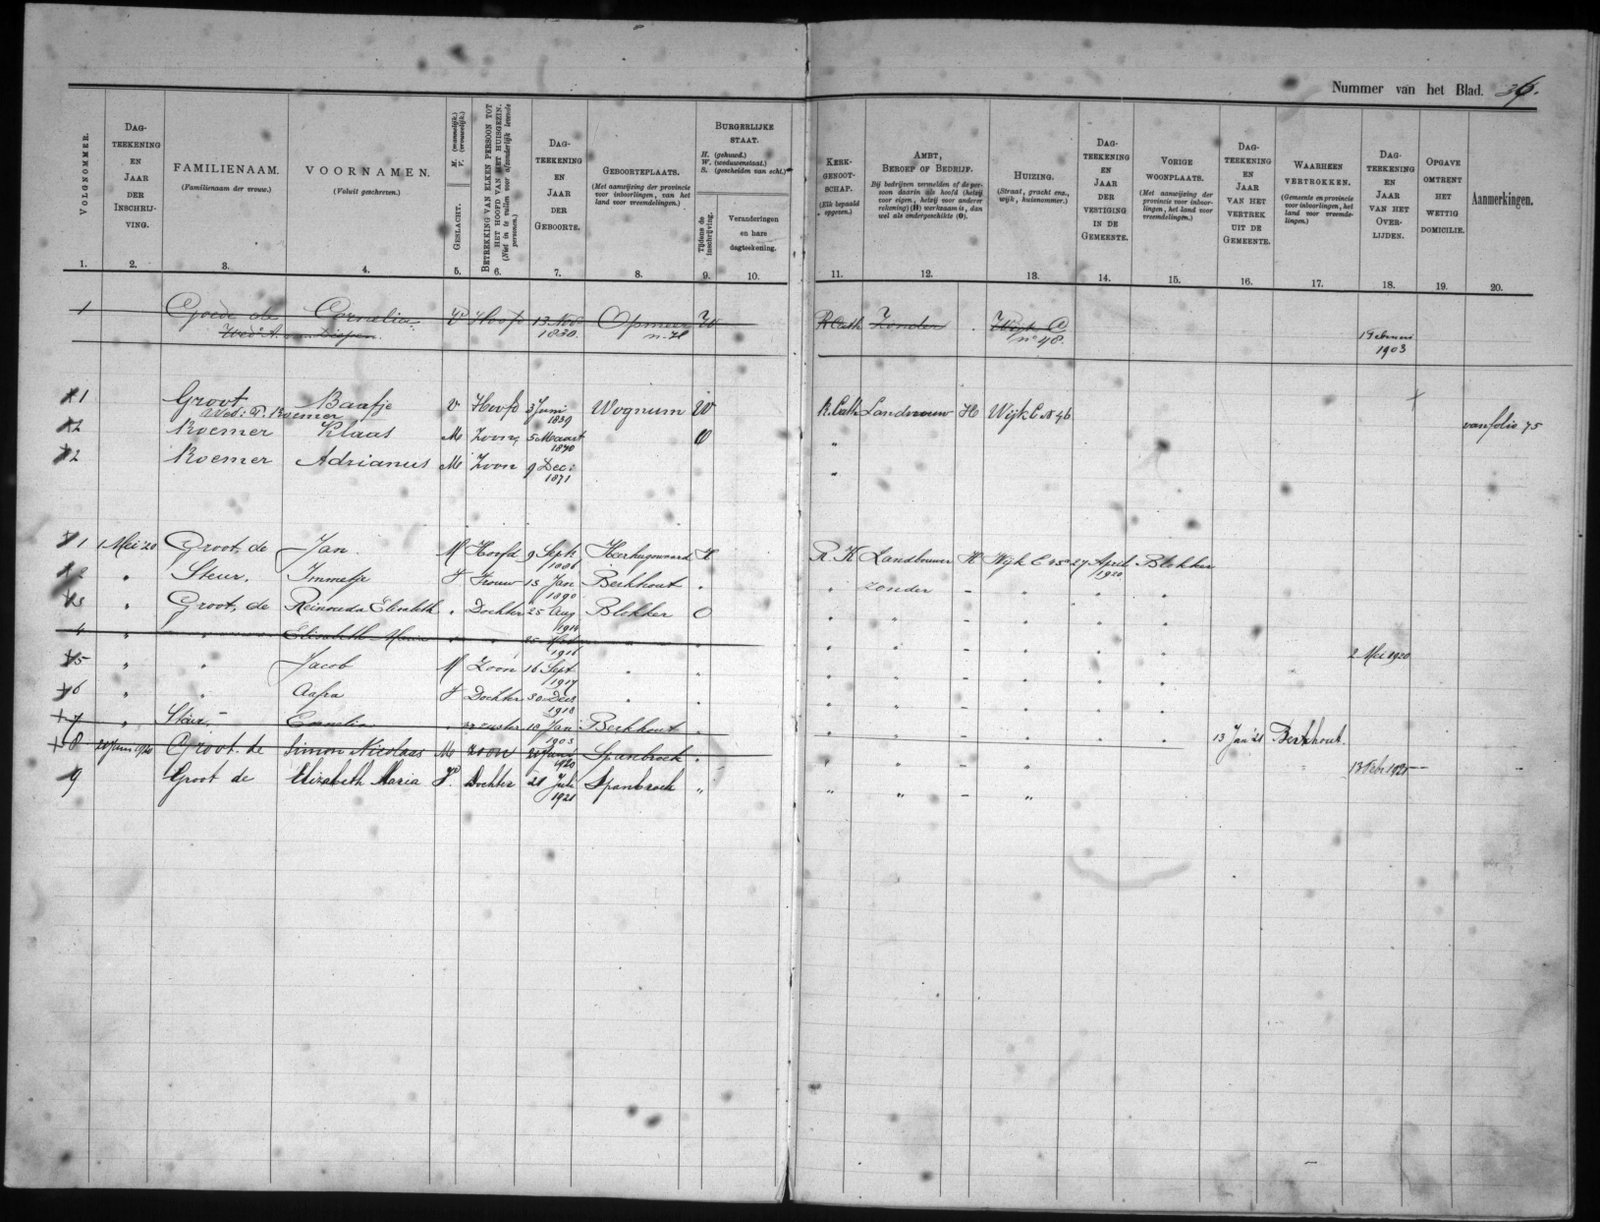 Nummer van het Blad. 36.
VOLGNOMMER.
DAG-
TEEKENING
EN
JAAR
DER
INSCHRIJ-
VING.
FAMILIENAAM.
(Familienaam der vrouw.)
VOORNAMEN.
(Voluit geschreven.)
M. (mannelijk.)
V. (vrouwelijk.)
GESLACHT.
BETREKKING VAN ELKEN PERSOON TOT
HET HOOFD VAN HET HUISGEZIN.
(Niet in te vullen voor afzonderlijk levende
personen.)
DAG-
TEEKENING
EN
JAAR
DER
GEBOORTE.
GEBOORTEPLAATS.
(Met aanwijzing der provincie
voor inboorlingen, van het
land voor vreemdelingen.)
BURGERLIJKE
STAAT.
H. (gehuwd.)
W. (weduwenstaat.)
S. (gescheiden van echt.)
Tijdens de
inschrijving.
Veranderingen
en hare
dagteekening.
KERK-
GENOOT-
SCHAP.
(Elk bepaald
opgeven.)
AMBT,
BEROEP OF BEDRIJF.
Bij bedrijven vermelden of de per-
soon daarin als hoofd (hetzij
voor eigen, hetzij voor anderer
rekening) (H) werkzaam is, dan
wel als ondergeschikte (O).
HUIZING.
(Straat, gracht enz.,
wijk, huisnummer.)
DAG-
TEEKENING
EN
JAAR
DER
VESTIGING
IN DE
GEMEENTE.
VORIGE
WOONPLAATS.
(Met aanwijzing der
provincie voor inboor-
lingen, het land voor
vreemdelingen.)
DAG-
TEEKENING
EN
JAAR
VAN HET
VERTREK
UIT DE
GEMEENTE.
WAARHEEN
VERTROKKEN.
(Gemeente en provincie
voor inboorlingen, het
land voor vreemde-
lingen.)
DAG-
TEEKENING
EN
JAAR
VAN HET
OVER-
LIJDEN.
OPGAVE
OMTRENT
HET
WETTIG
DOMICILIE.
Aanmerkingen.
1. 2. 3. 4. 5. 6. 7. 8. 9. 10. 11. 12. 13. 14. 15. 16. 17. 18. 19. 20.
1 Goede de Cornelia V Hoofd 13 Nov 1830. Opmeer n. H W R Cath Zonder Wijk C n° 48. 1 Februari 1903
1 Groot Wed: P. Koemer Baafje V Hoofd 3 Juni 1839 Wognum W R. Cath Landvrouw H Wijk C. N 46 van folio 75
2 Koemer Klaas M Zoon 5 Maart 1870 O "
2 Koemer Adrianus M Zoon 9 Dec: 1871 "
1 1 Mei '20 Groot, de Jan. M Hoofd 9 Sept Heerhugowaard H R. K Landbouwer H Wijk C 27 April 1920 Blokker
2 " Steur. Immetje V Vrouw 15 Jan 1890 Berkhout " " zonder - " " "
3 " Groot, de Reinouda Elisabeth " Dochter 25 Aug 1914 Blokker O " " - " " "
4 " " Elisabeth " " 25 1916 " " " " - " " " 2 Mei 1920
5 " " Jacob M Zoon 16 Sept. 1917 " " " " - " " "
6 " " Aafra V Dochter 30 Dec 1918 " " " " - " " "
7 " Steur, Cornelia " zuster 19 Jan 1903 Berkhout " " " - " " " 13 Jan '21 Berkhout.
8 20 Juni 1920 Groot. de Simon Nicolaas M zoon 20 Juni 1920 Spanbroek " " " - " 13 Feb 1921
9 Groot de Elizabeth Maria V. Dochter 21 Juli 1921 Spanbroek " " " - "